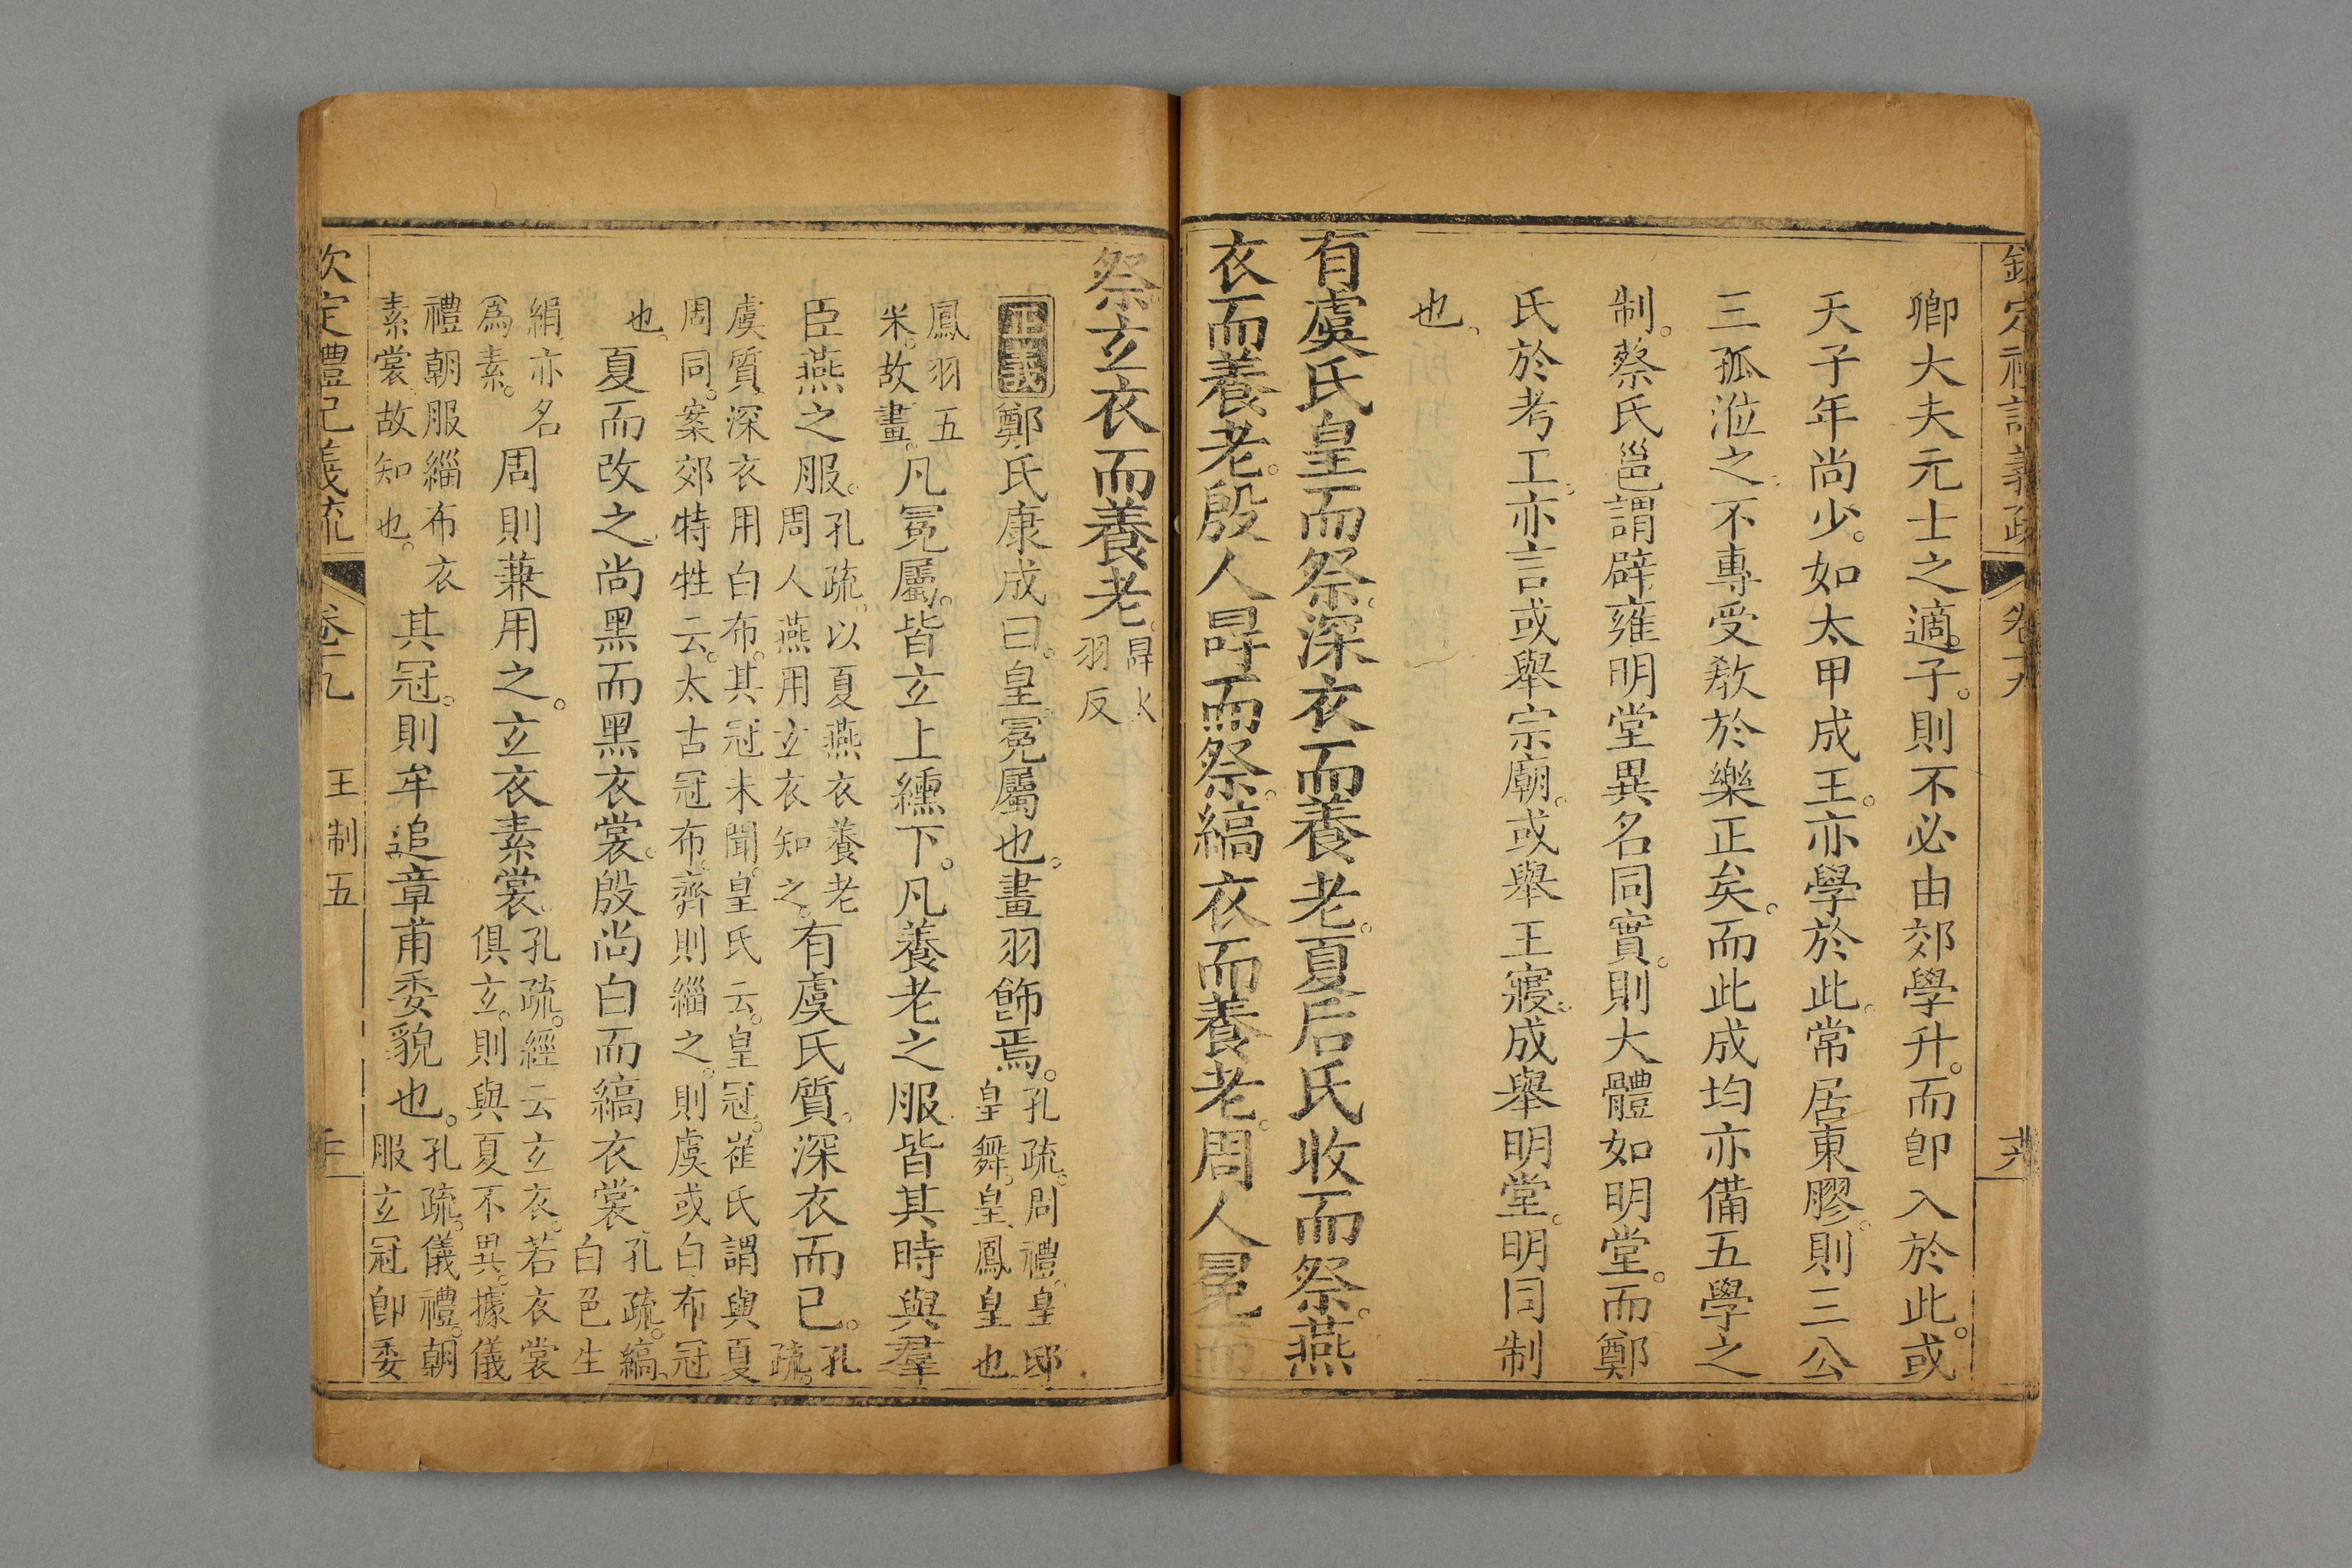 卿大夫元士之適子。則不必由郊學升。而卽入於此。或
天子年尚少。如太甲成王。亦學於此。常居東膠。則三公
三孤涖之。不專受敎於樂正矣。而此成均亦備五學之
制。蔡氏邕謂辟雍明堂異名同實。則大體如明堂。而鄭
氏於考工。亦言或舉宗廟。或舉王寢。或舉明堂。明同制
也。
有虞氏皇而祭。深衣而養老。夏后氏收而祭。燕
衣而養老。殷人冔而祭。縞衣而養老。周人冕而
祭玄衣而養老。冔火
羽反
正義鄭氏康成曰。皇冕屬也。畫羽飾焉。孔疏。周禮。皇邸
皇舞。皇鳳皇也。
鳳羽五
采。故畫。凡冕屬。皆玄上纁下。凡養老之服。皆其時與羣
臣燕之服。孔疏。以夏燕衣養老
周人燕用玄衣知之。有虞氏質。深衣而已。孔
疏。
虞質深衣用白布。其冠未聞。皇氏云。皇冠。崔氏謂與夏
周同。案郊特牲云。太古冠布。齊則緇之。則虞或白布冠
也。夏而改之。尚黑而黑衣裳。殷尚白而縞衣裳。孔疏。縞。
白色生
絹。亦名
爲素。周則兼用之。玄衣素裳。孔疏。經云玄衣。若衣裳
俱玄。則與夏不異。據儀
禮朝服緇布衣
素裳。故知也。其冠。則牟追章甫委貌也。孔疏。儀禮。朝
服玄冠卽委
欽定禮記義疏 王制五